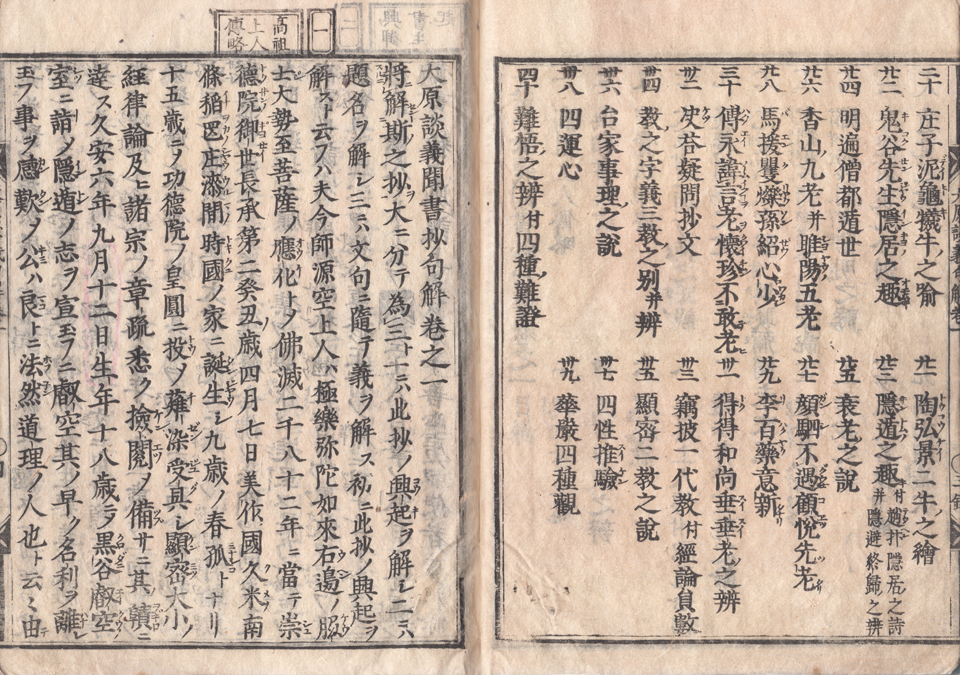 二十 庄子泥龜犠牛ノ之喻 廿一 陶弘景二牛ノ之繪
廿二 鬼谷先生隱居ノ之趣 廿三 隱遁ノ之趣 付趙抃隱居之詩并隱避終歸之辨
廿四 明遍僧都遁世 廿五 衰老ノ之說
廿六 香山九老并睢陽五老 廿七 顔駟不遇顧悅先老
廿八 馬援矍爍孫紹心少 廿九 李百藥意新
三十 傅永諱言老懷珍不敢老 卅一 得得和尚垂垂老ノ之辨
卅二 决答疑問抄文 卅三 竊披一代教付經論員數
卅四 教ノ之字義三教ノ之别并辨 卅五 顯密二教之說
卅六 台家事理ノ之說 卅七 四性推驗
卅八 四運心 卅九 華嚴四種觀
四十 難悟之辨付四種難證
高祖
上人
傳略
一
大原談義聞書抄句解卷之一
將解斯之抄大ニ分テ為三ト一ニハ此抄ノ興起ヲ解シ二ニハ
題名ヲ解シ三ニハ文句ニ隨テ義ヲ解ス初ニ此抄ノ興起ヲ
解スト云フハ夫今師源空上人ハ極樂弥陀如來右邊ノ脇
士大勢至菩薩ノ應化トメ佛滅二千八十二年ニ當テ崇
德院御世長承第二癸丑歳四月七日美作國久米南
條稲岡庄漆間時國ノ家ニ誕生シ九歳ノ春孤トナリ
十五歳ニメ功德院ノ皇圓ニ投メ薙染受具シ顯密大小ノ
經律論及ヒ諸宗ノ章疏悉ク撿閲メ備サニ其ノ賾ニ
達ス久安六年九月十二日生年十八歳ニメ黒谷叡空
室ニ詣メ隱遁ノ志ヲ宣玉フニ叡空其ノ早ク名利ヲ離レ
玉フ事ヲ感歎メ公ハ良トニ法然道理ノ人也ト云云由